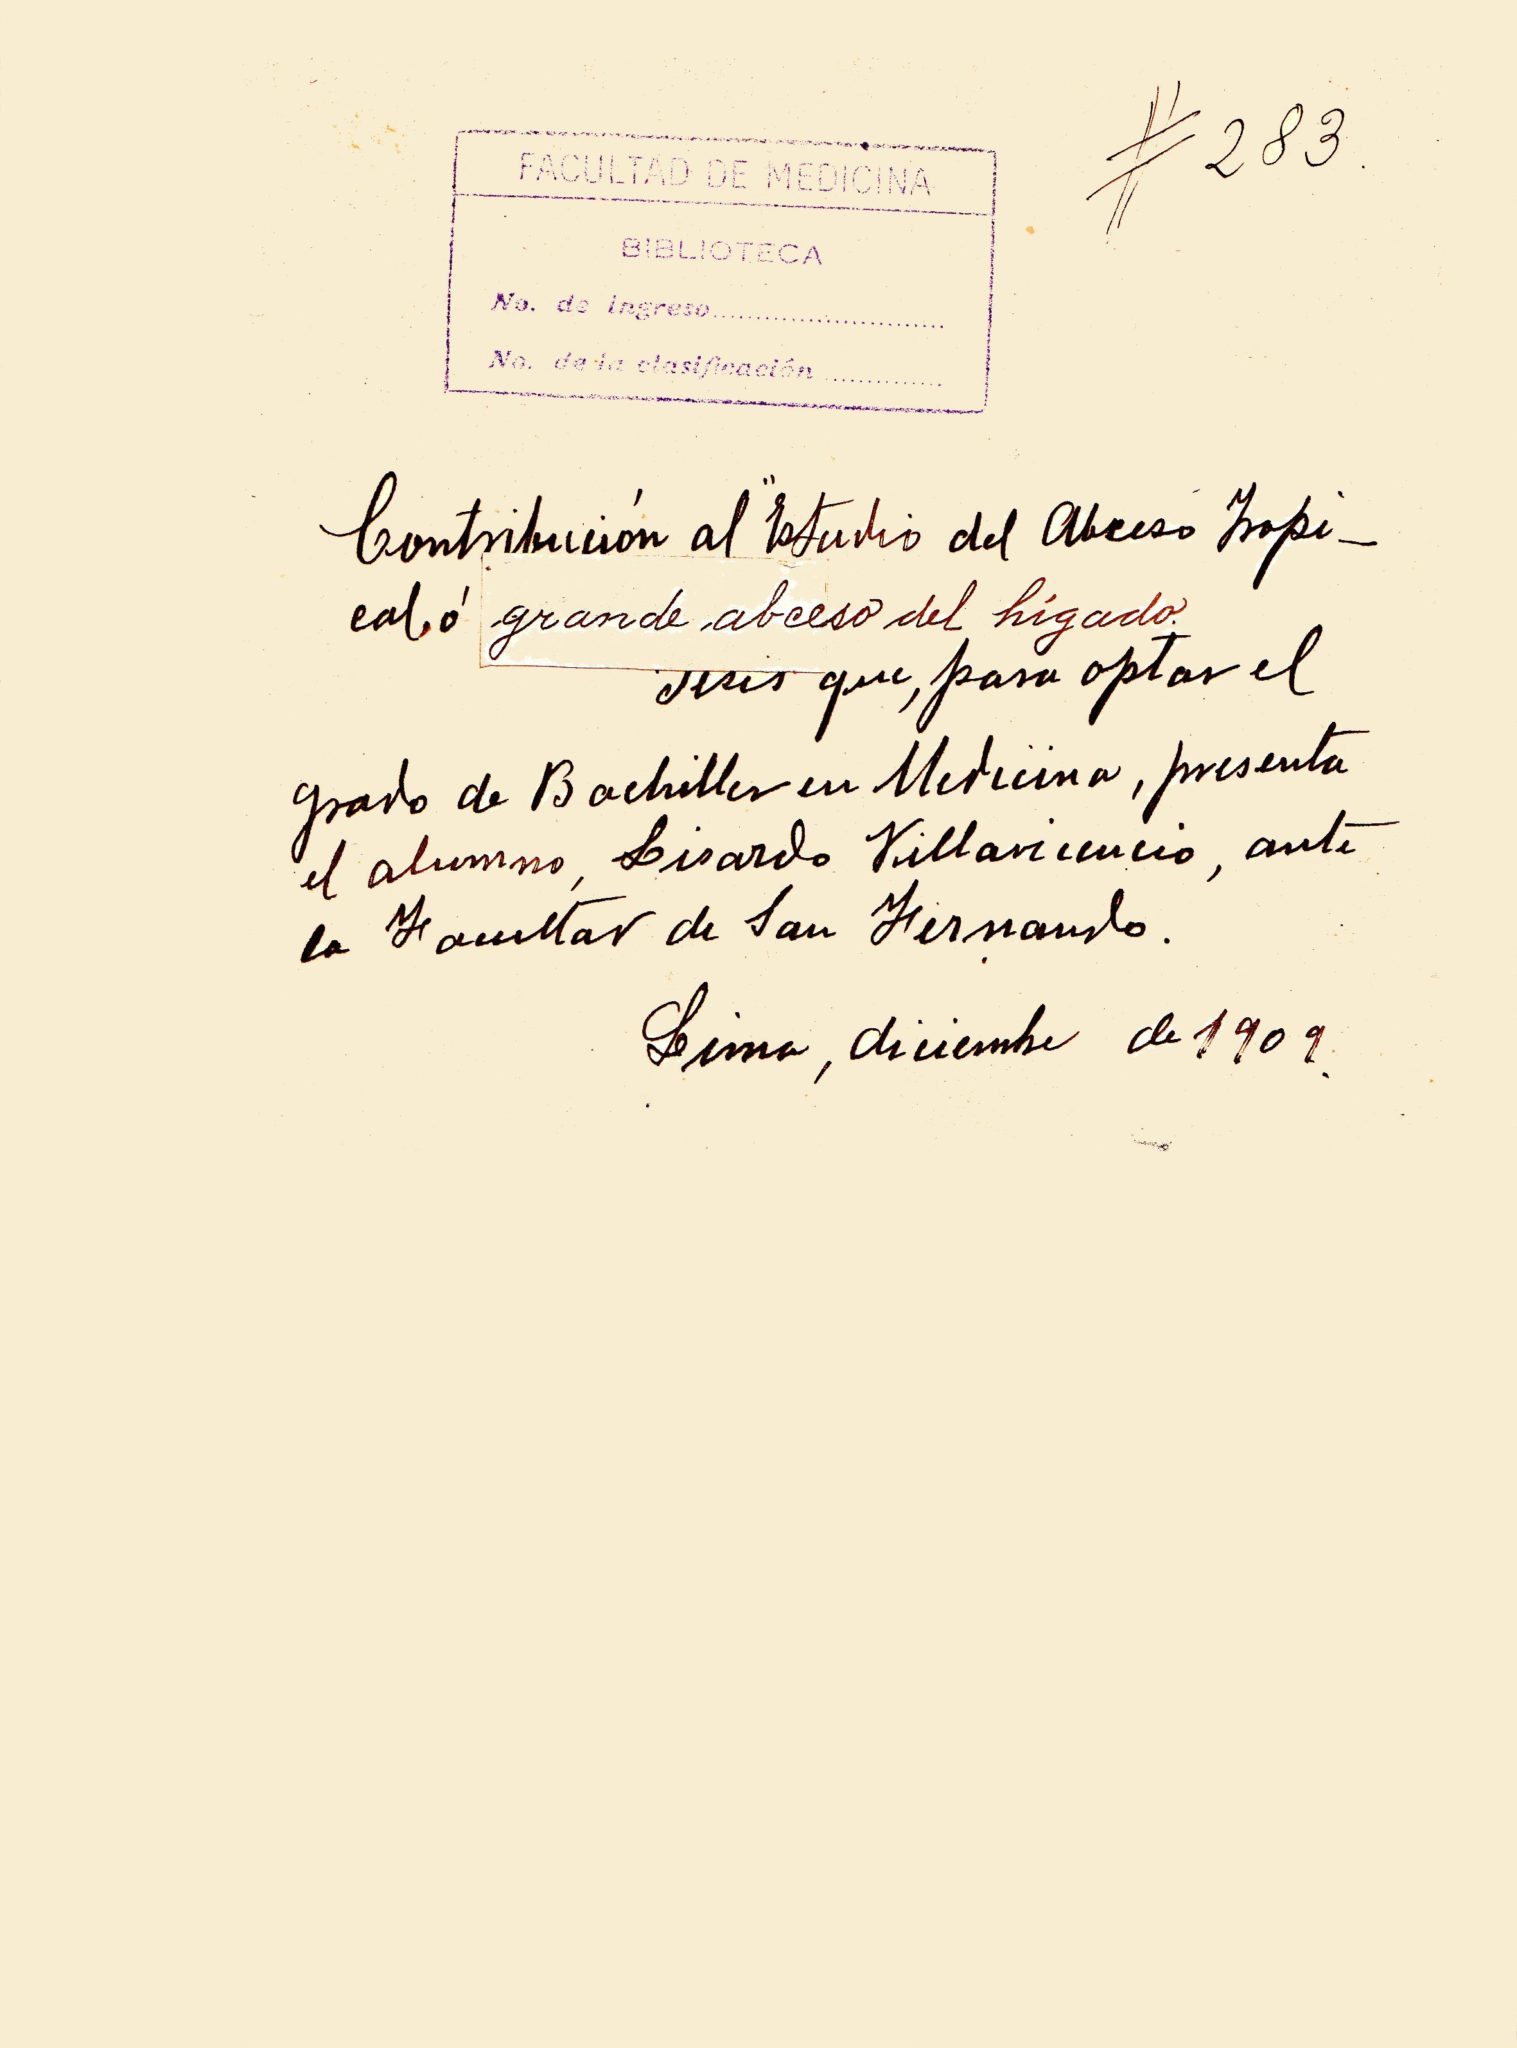 # 283.
FACULTAD DE MEDICINA
BIBLIOTECA
No. de ingreso..........................
No. de la clasificación ..............
Contribución al "Estudio del Abceso Tropi-
cal, ó grande abceso del hígado.
Tesis que, para optar el
grado de Bachiller en Medicina, presenta
el alumno, Lisardo Villavicencio, ante
la Facultad de San Fernando.
Lima, diciembre de 1909.